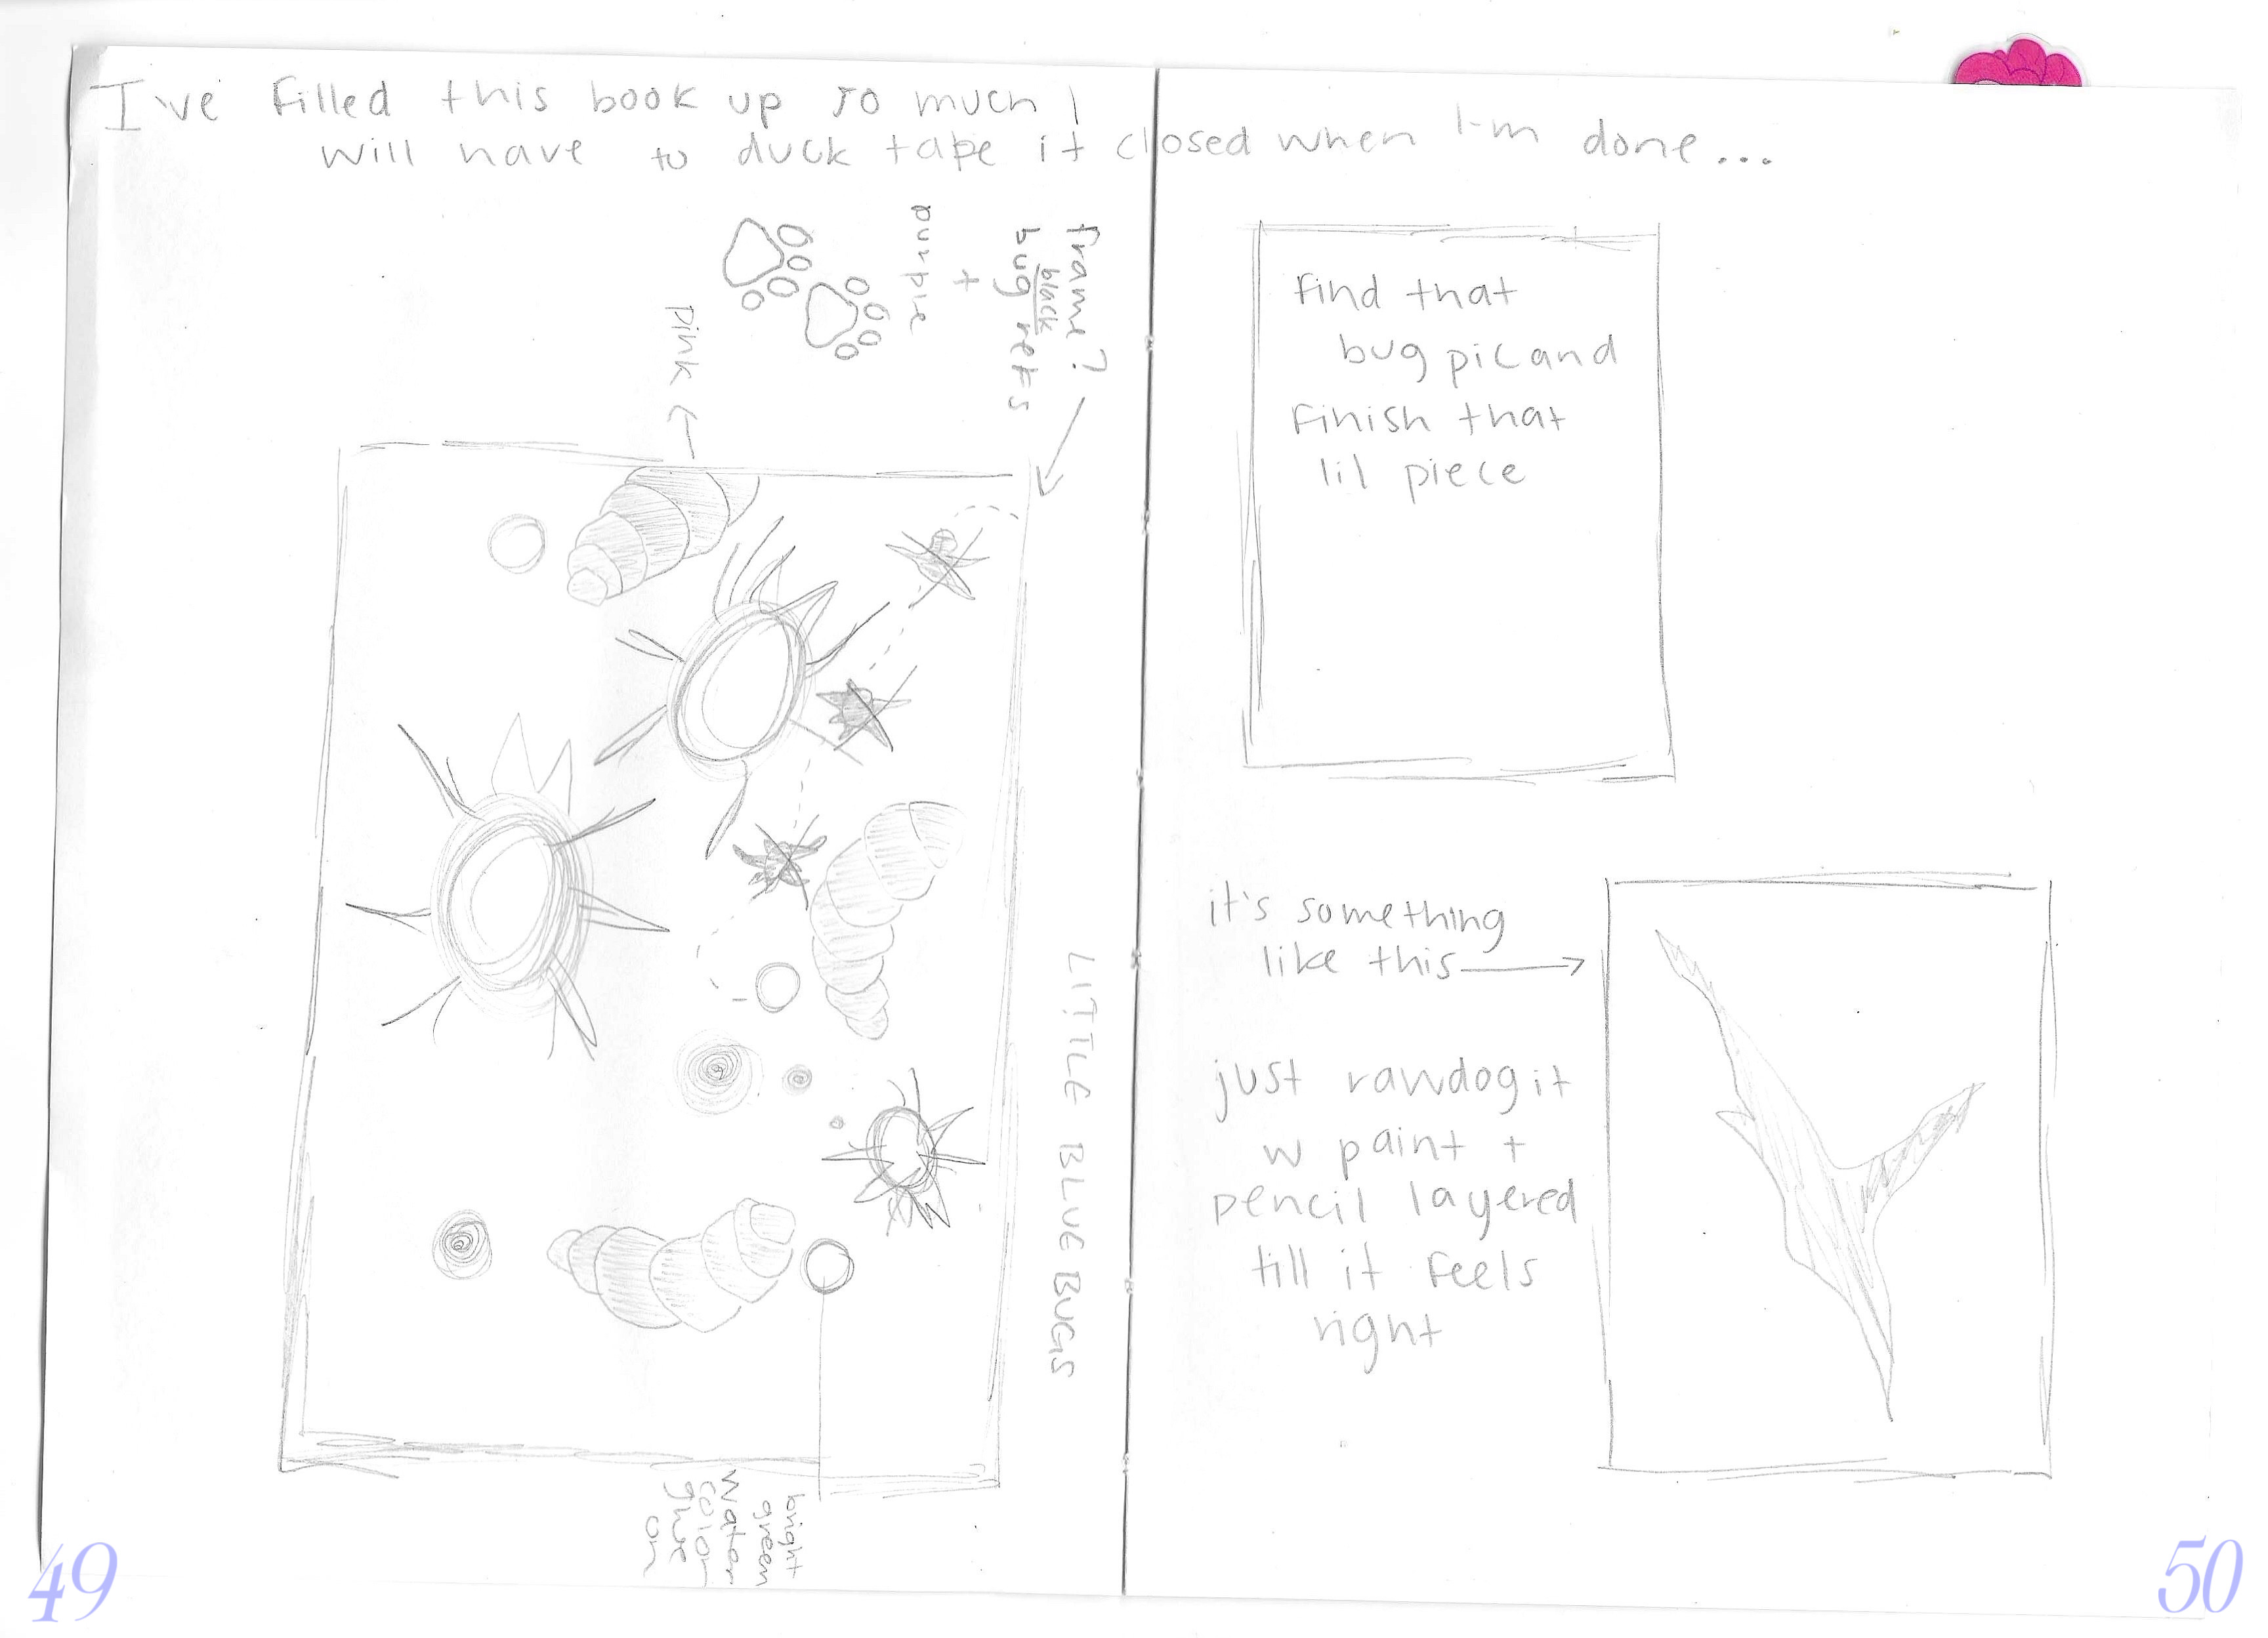 I've filled this book up so much I
will have to duck tape it closed when I'm done...
frame?
black
bug refs
+
purple
pink
LITTLE BLUE BUGS
bright
green
water
color
glue
on
find that
bug pic and
finish that
lil piece
it's something
like this
just rawdog it
w paint +
pencil layered
till it feels
right
49
50